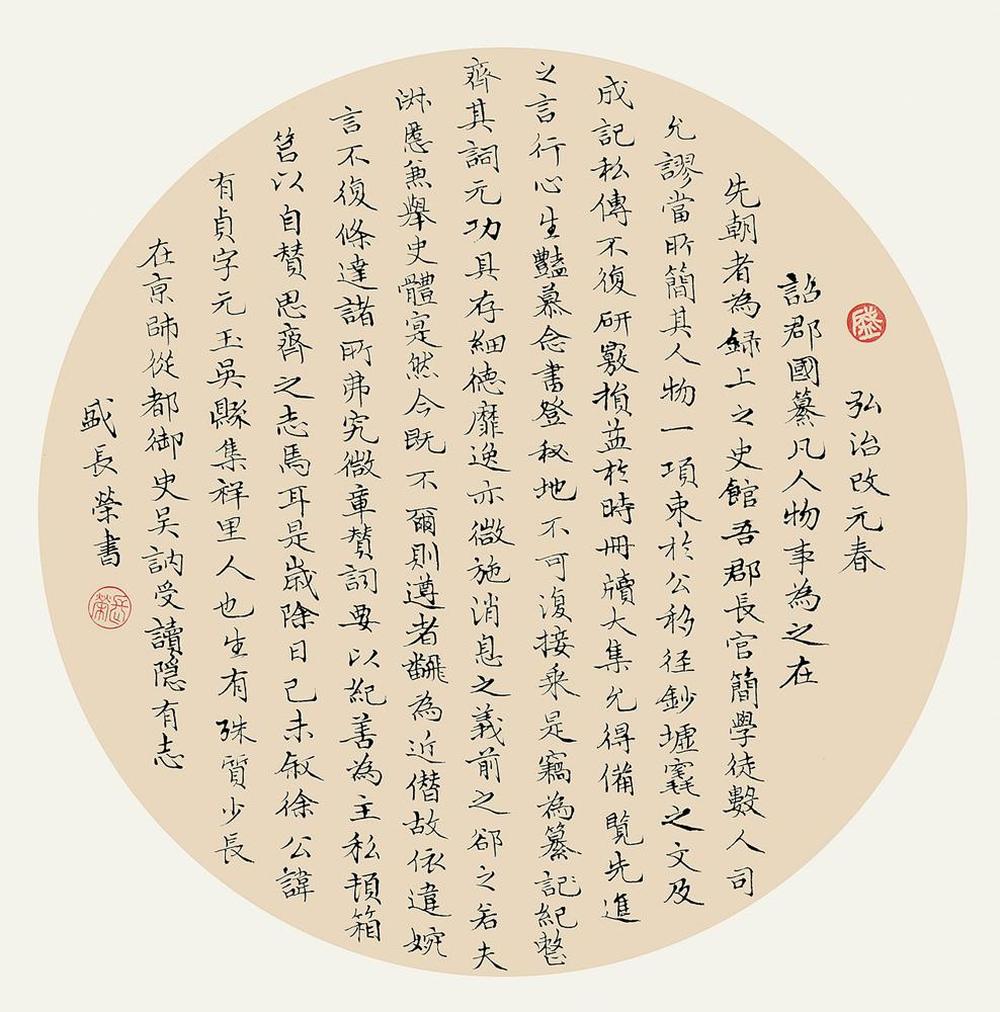 弘治改元春
詔郡國纂凡人物事為之在
先朝者為録上之史館吾郡長官簡學徒數人司
允謬當所簡其人物一項束於公移徑鈔墟窀之文及
成記私傳不復研覈損益於時冊牘大集允得備覽先進
之言行心生豔慕念書登秘地不可復接乘是竊為纂記紀整
齊其詞元功具存細德靡逸亦微施消息之義前之郤之若夫
淋慝兼舉史體寔然今既不爾則遵者飜為近僭故依違婉
言不復條達諸所弗究微章賛詞要以紀善為主私頓箱
笤以自賛思齊之志焉耳是歲除日己未叙徐公諱
有貞字元玉吳縣集祥里人也生有殊質少長
在京師從都御史吳訥受讀隱有志
盛長榮書